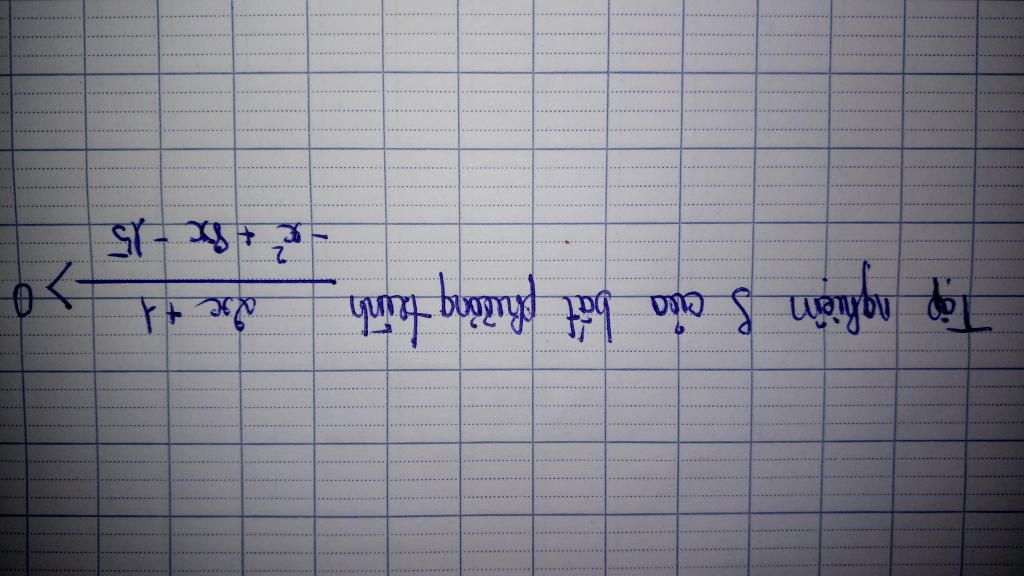 Tập nghiệm S của bất phương trình \frac{2x + 1}{-x^2 + 8x - 15} < 0